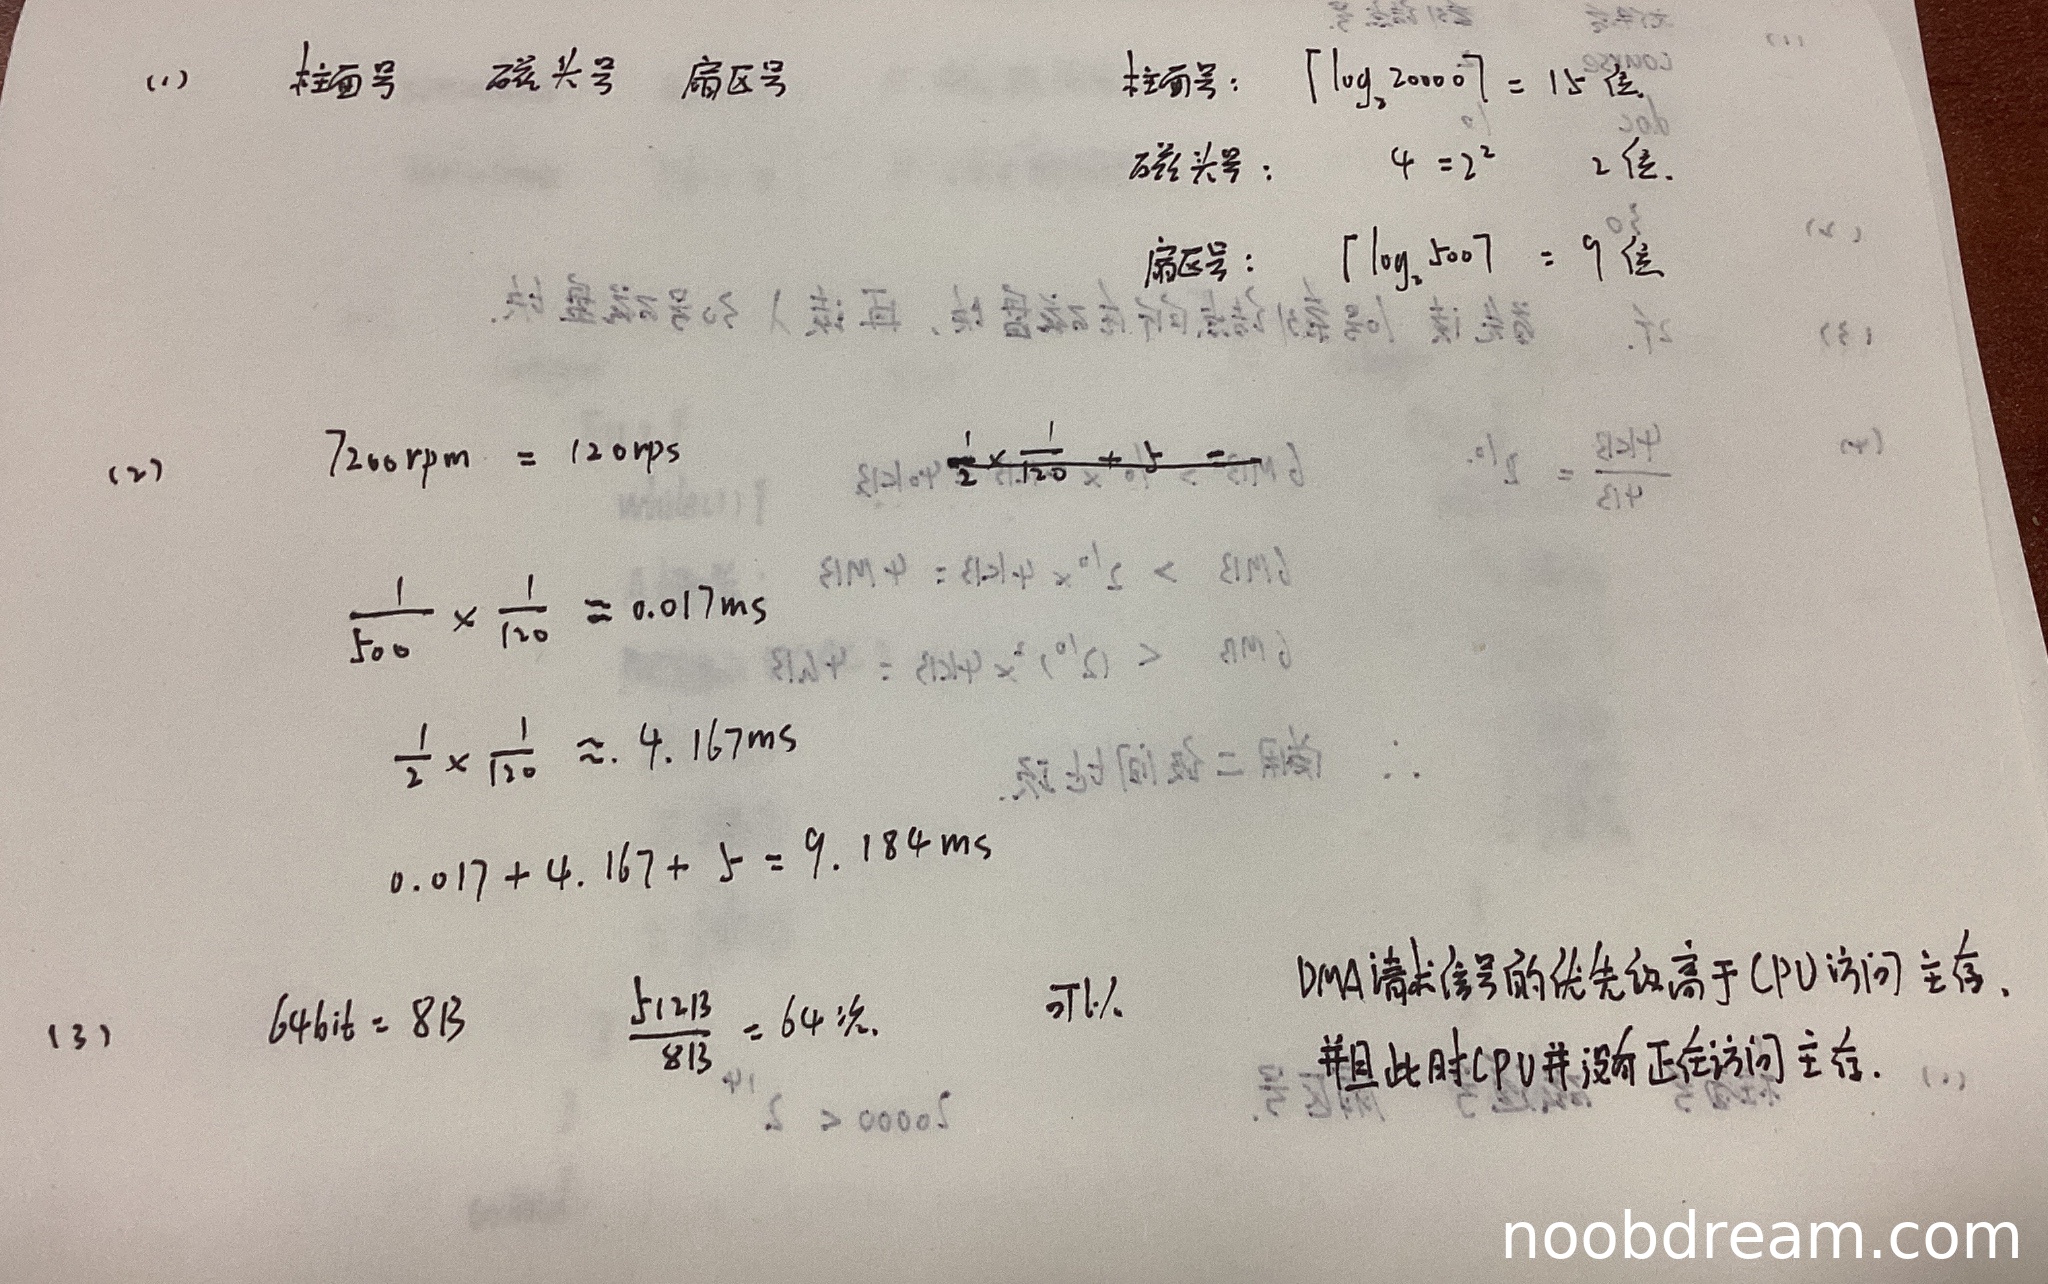 (1) 柱面号 磁头号 扇区号 柱面号: ⌈log₂20000⌉ = 15位.
磁头号: 4 = 2² 2位.
扇区号: ⌈log₂500⌉ = 9位
(2) 7200rpm = 120rps 1/2 × 1/120 + 5 =
1/500 × 1/120 ≈ 0.017ms
1/2 × 1/120 ≈. 4.167ms
0.017 + 4.167 + 5 = 9.184ms
(3) 64bit = 8B 512B/8B = 64次. 可以 DMA请求信号的优先级高于CPU访问主存.
并且此时CPU并没有正在访问主存.
noobdream.com